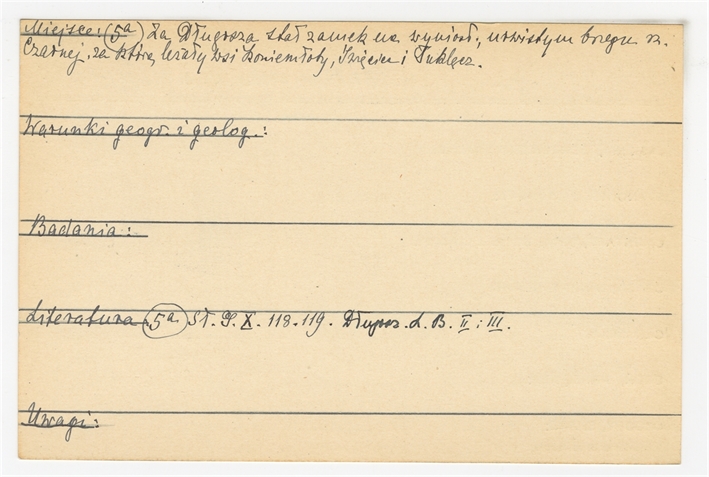 Miejsce: (5a) Za Długosza stał zamek na wyniosł., urwistym brzegu rz.
Czarnej, za którą leżały wsi Koniemłoty, Szęciee i Tuklęcz.
Warunki geogr. i geolog.:
Badania:
Literatura (5a) Sł. G. X. 118-119. Długosz. L. B. II i III.
Uwagi: